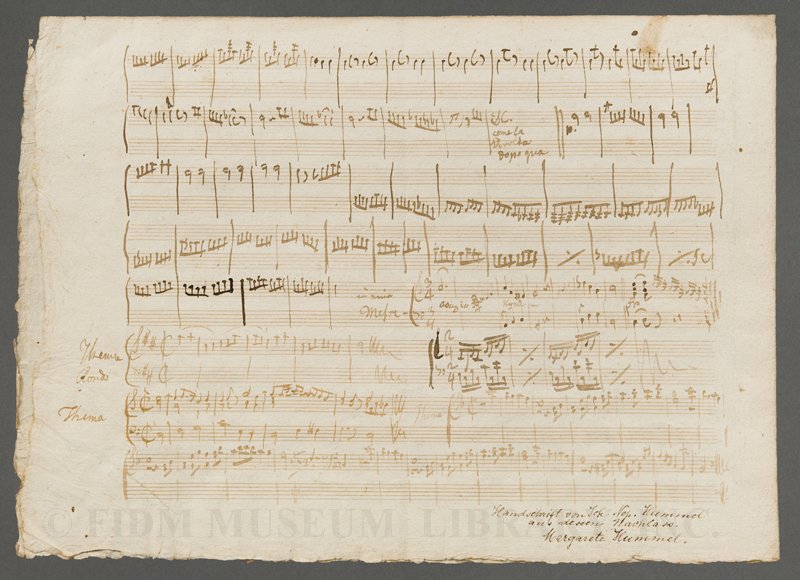 &c.
come la
dopo qua
in mia
Messe
Thema
Rondo
Thema
Thema
Handschrift von Joh. Nep. Hummel
aus dessen Nachlass.
Margarete Hummel.
© FIDM MUSEUM LIBRA